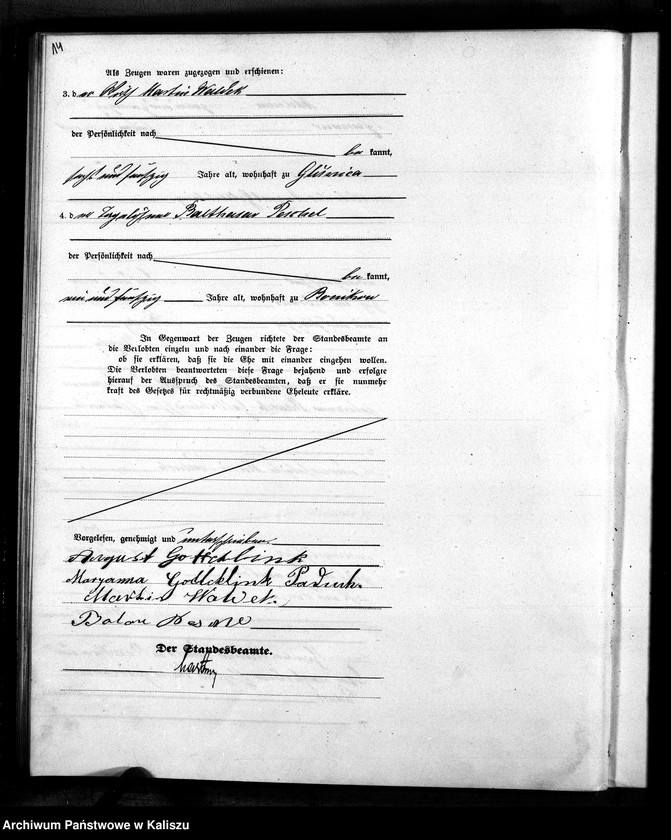 14
Als Zeugen waren zugezogen und erschienen:
3. der Martin Waldek
der Persönlichkeit nach
bekannt,
sechs und fünfzig Jahre alt, wohnhaft zu Glisnica
4. der Tagelöhner Balthasar Peschel
der Persönlichkeit nach
bekannt,
Jahre alt, wohnhaft zu
In Gegenwart der Zeugen richtete der Standesbeamte an
die Verlobten einzeln und nach einander die Frage:
ob sie erklären, daß sie die Ehe mit einander eingehen wollen.
Die Verlobten beantworteten diese Frage bejahend und erfolgte
hierauf der Ausspruch des Standesbeamten, daß er sie nunmehr
kraft des Gesetzes für rechtmäßig verbundene Eheleute erkläre.
Vorgelesen, genehmigt und unterschrieben
August
Maryanna
Martin
Der Standesbeamte.
Archiwum Państwowe w Kaliszu